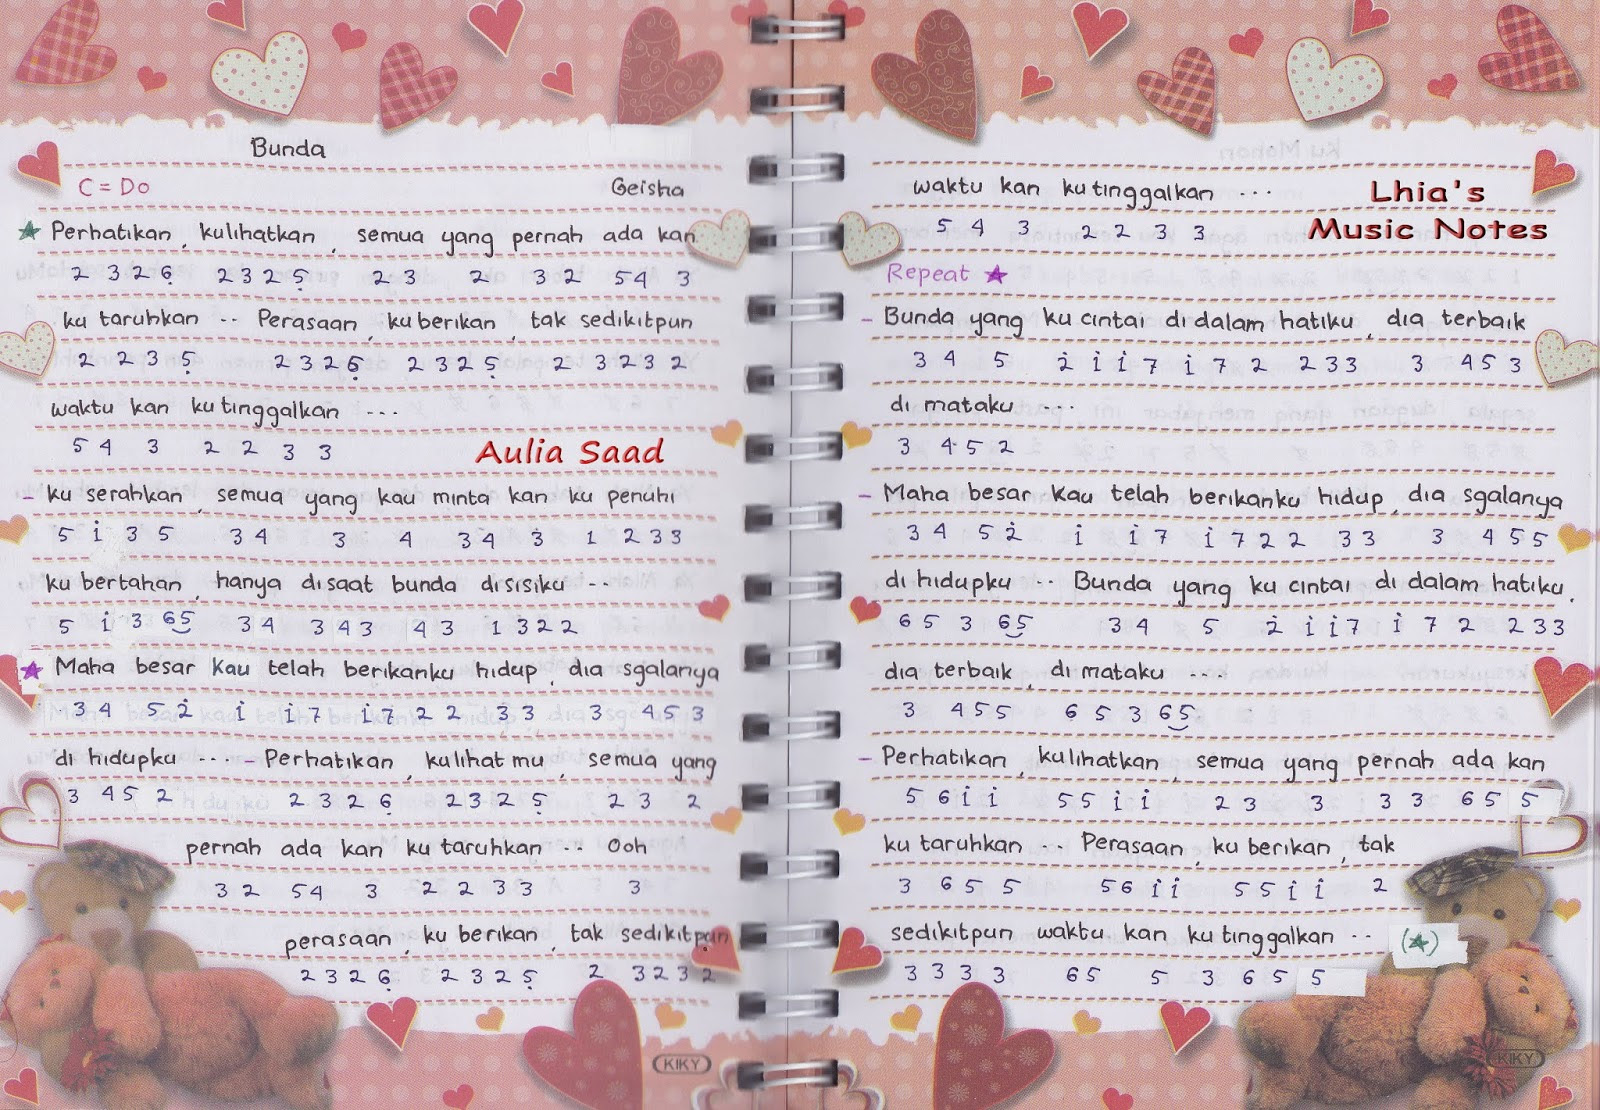 Bunda
C = Do Geisha
Perhatikan, kulihatkan, semua yang pernah ada kan
2 3 2 6̣ 2 3 2 5̣ 2 3 2 3 2 5 4 3
ku taruhkan -- Perasaan, ku berikan, tak sedikitpun
2 2 3 5̣ 2 3 2 6̣ 2 3 2 5̣ 2 3 2 3 2
waktu kan ku tinggalkan ...
5 4 3 2 2 3 3
Aulia Saad
- ku serahkan, semua yang kau minta kan ku penuhi
5 i 3 5 3 4 3 4 3 4 3 1 2 3 3
ku bertahan, hanya disaat bunda disisiku ...
5 i 3 65 3 4 3 4 3 4 3 1 3 2 2
Maha besar kau telah berikanku hidup, dia sgalanya
3 4 5 2̇ i i 7 i 7 2 2 3 3 3 4 5 3
di hidupku ... - Perhatikan, kulihat mu, semua yang
3 4 5 2 2 3 2 6̣ 2 3 2 5̣ 2 3 2
pernah ada kan ku taruhkan ... Ooh
3 2 5 4 3 2 2 3 3 3
perasaan, ku berikan, tak sedikitpun
2 3 2 6̣ 2 3 2 5̣ 2 3 2 3 2
KIKY
waktu kan ku tinggalkan ...
5 4 3 2 2 3 3
Lhia's
Music Notes
Repeat ★
- Bunda yang ku cintai di dalam hatiku, dia terbaik
3 4 5 2̇ i i 7 i 7 2 2 3 3 3 4 5 3
di mataku ...
3 4 5 2
- Maha besar kau telah berikanku hidup, dia sgalanya
3 4 5 2̇ i i 7 i 7 2 2 3 3 3 4 5 5
di hidupku -- Bunda yang ku cintai di dalam hatiku,
6 5 3 65 3 4 5 2̇ i i 7 i 7 2 2 3 3
dia terbaik, di mataku ...
3 4 5 5 6 5 3 65
- Perhatikan, kulihatkan, semua yang pernah ada kan
5 6 i i 5 5 i i 2 3 3 3 3 6 5 5
ku taruhkan ... Perasaan, ku berikan, tak
3 6 5 5 5 6 i i 5 5 i i 2
sedikitpun waktu kan ku tinggalkan -- (★)
3 3 3 3 6 5 5 3 6 5 5
KIKY